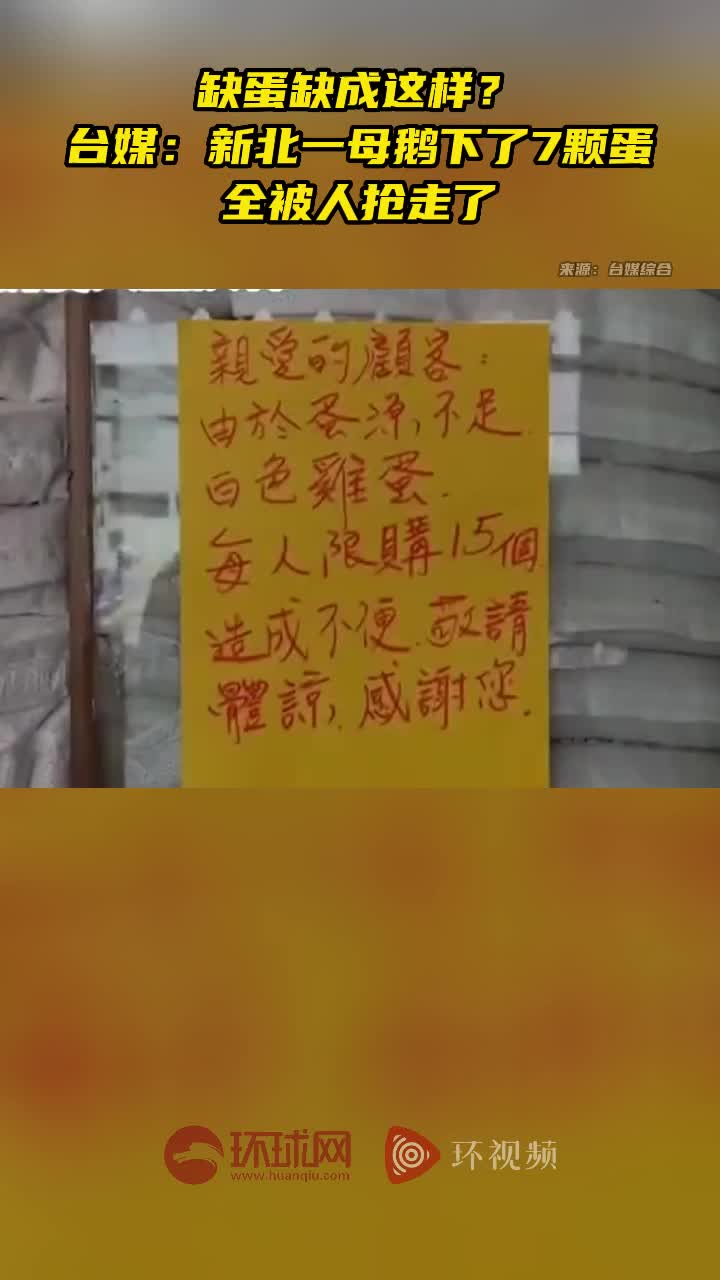 缺蛋缺成这样？
台媒：新北一母鹅下了7颗蛋
全被人抢走了
来源：台媒综合
親愛的顧客：
由於蛋源，不足.
白色雞蛋.
每人限購15個
造成不便.敬請
體諒，感謝您.
环球网
www.huanqiu.com
环视频